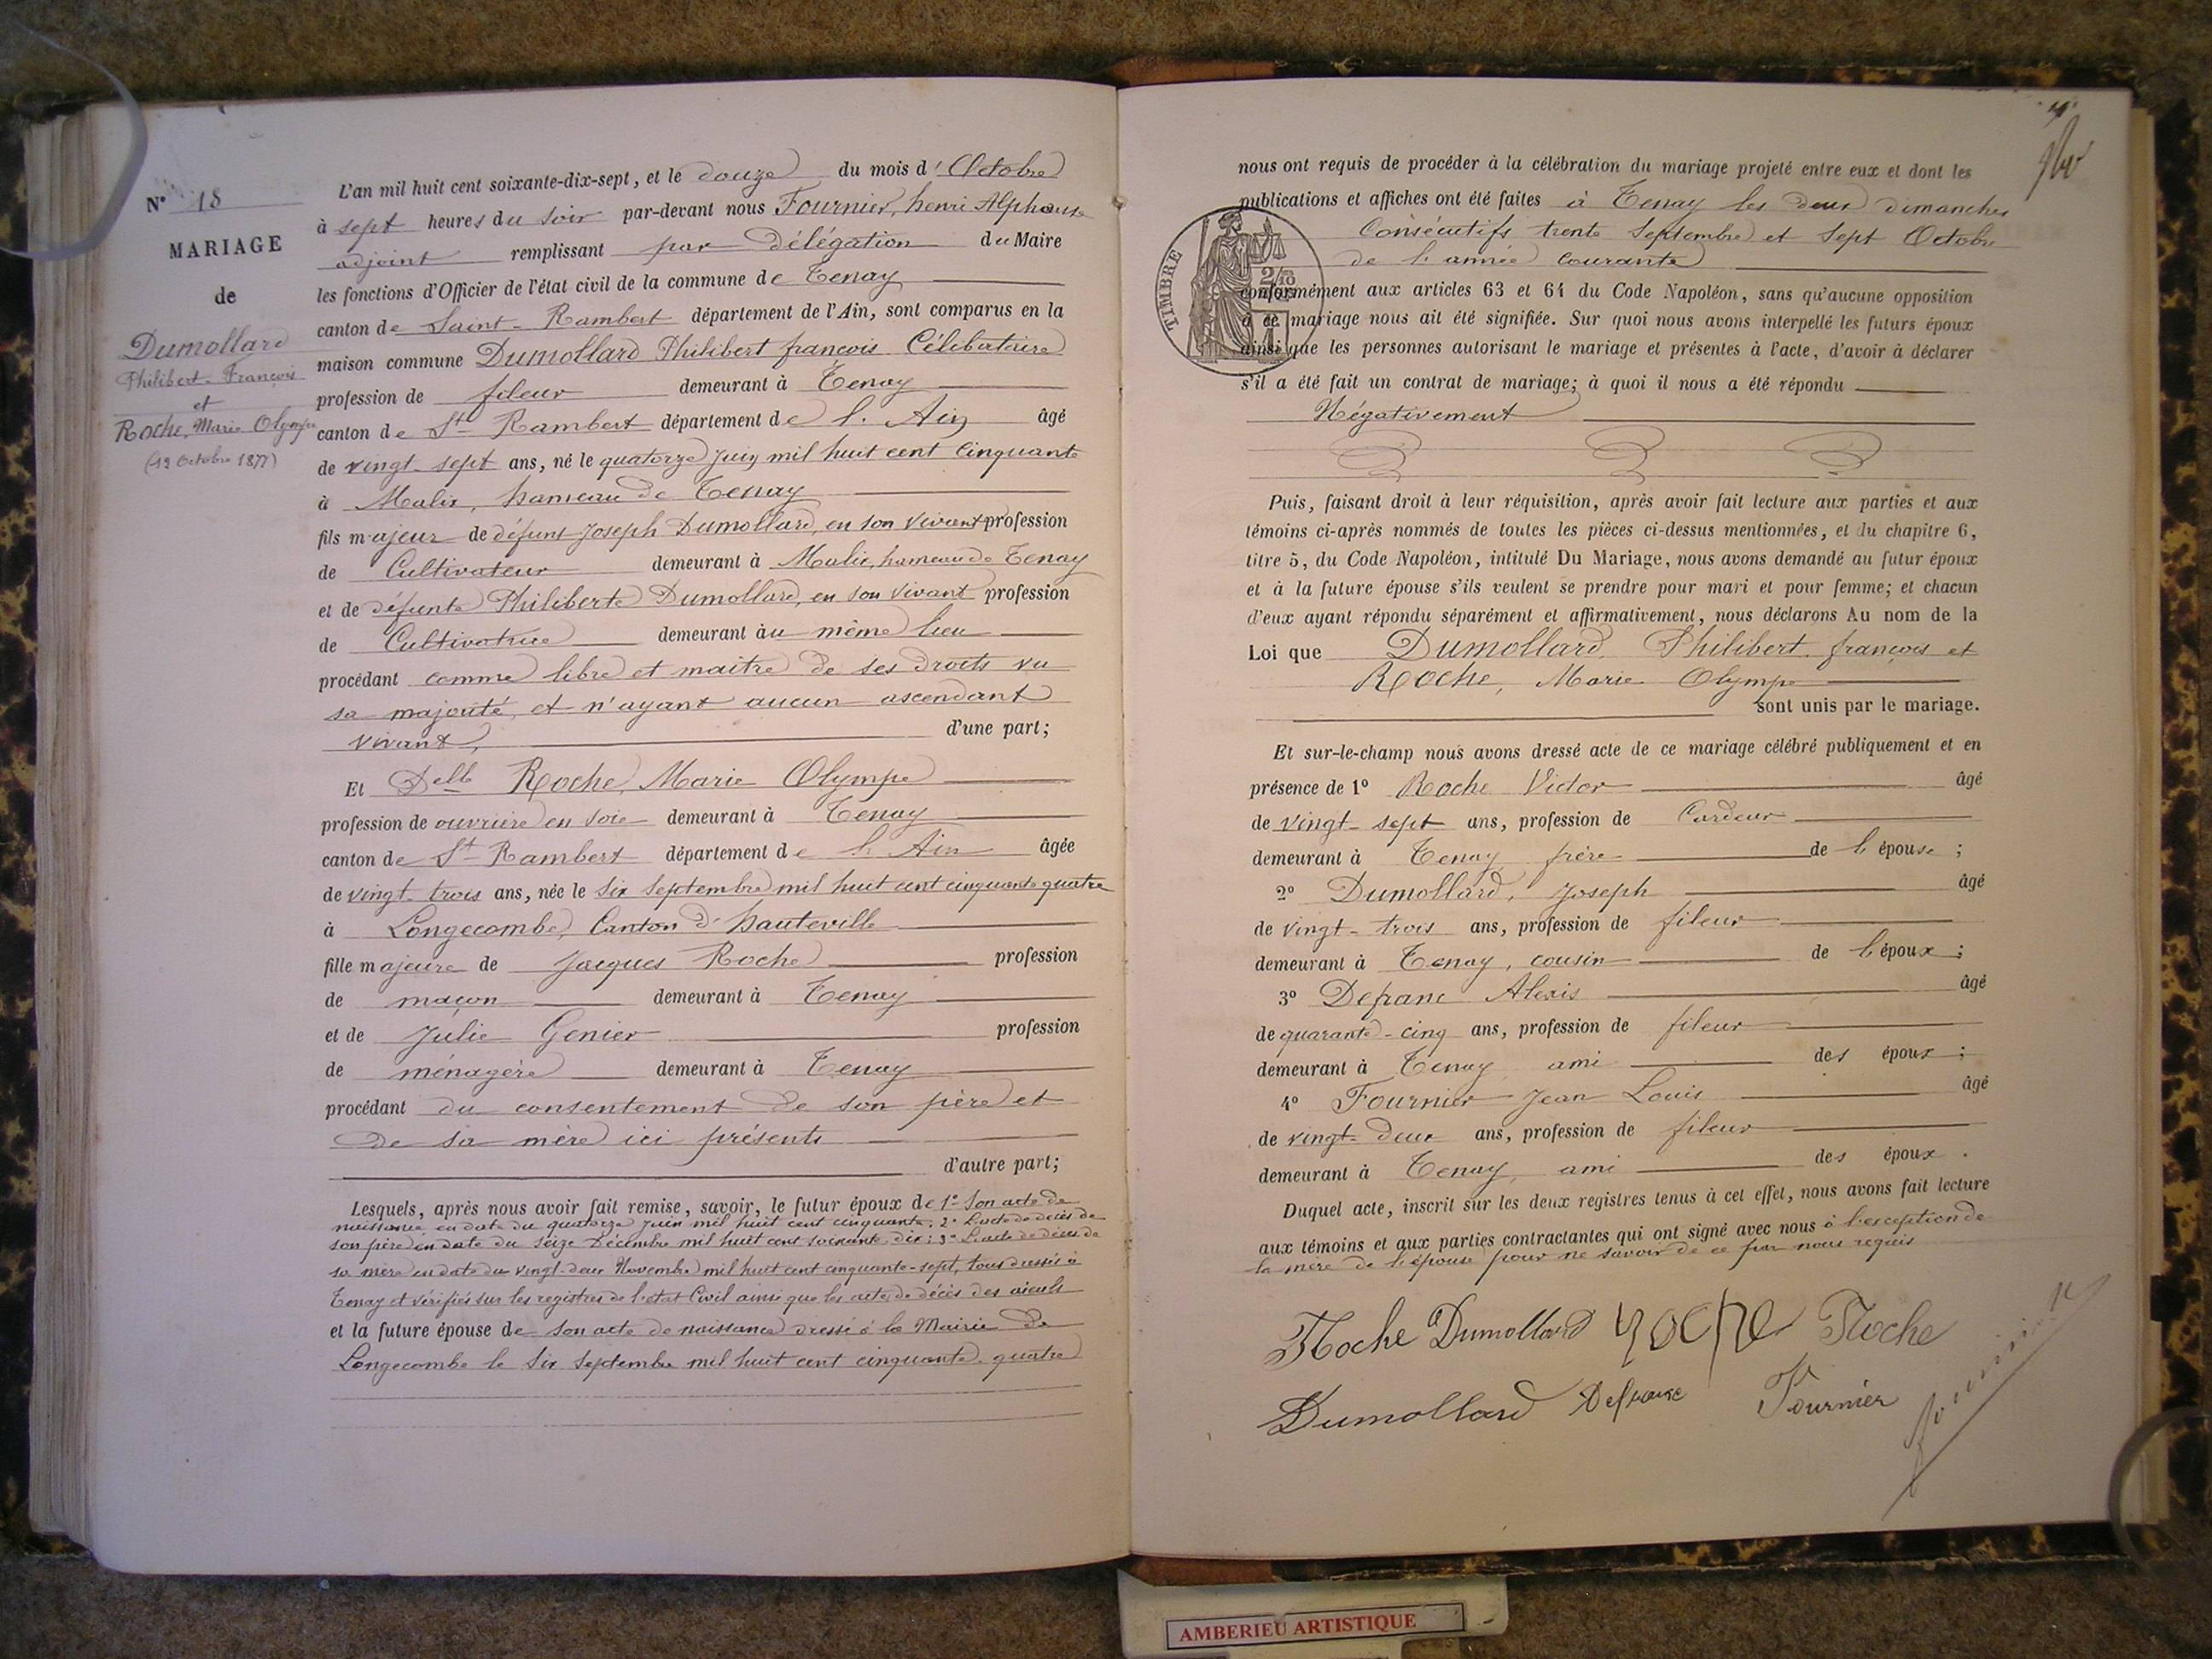 N° 18
MARIAGE
de
Dumollard
Philibert-François
et
Roche, Marie Olympe
(12 Octobre 1877)
L'an mil huit cent soixante-dix-sept, et le douze du mois d'Octobre
à sept heures du soir par-devant nous Fournier, henri Alphonse
adjoint remplissant par délégation du Maire
les fonctions d'Officier de l'état civil de la commune de Tenay
canton de Saint-Rambert département de l'Ain, sont comparus en la
maison commune Dumollard Philibert françois Célibataire
profession de fileur demeurant à Tenay
canton de St Rambert département de l'Ain âgé
de vingt-sept ans, né le quatorze Juin mil huit cent Cinquante
à Malix, hameau de Tenay
fils majeur de défunt Joseph Dumollard, en son vivant profession
de Cultivateur demeurant à Malix, hameau de Tenay
et de défunte Philiberte Dumollard, en son vivant profession
de Cultivatrice demeurant au même lieu
procédant comme libre et maitre de ses droits vu
sa majorité, et n'ayant aucun ascendant
vivant, d'une part;
Et Delle Roche, Marie Olympe
profession de ouvrière en soie demeurant à Tenay
canton de St Rambert département de l'Ain âgée
de vingt-trois ans, née le six Septembre mil huit cent cinquante quatre
à Longecombe, Canton d'hauteville
fille majeure de Jacques Roche profession
de maçon demeurant à Tenay
et de Julie Genier profession
de ménagère demeurant à Tenay
procédant du consentement de son père et
de sa mère ici présents
d'autre part;
Lesquels, après nous avoir fait remise, savoir, le futur époux de 1° Son acte de
naissance en date du quatorze Juin mil huit cent cinquante; 2° L'acte de décès de
son père en date du seize Décembre mil huit cent soixante-dix; 3° L'acte de décès de
sa mère en date du vingt-deux Novembre mil huit cent cinquante-sept, tous dressés à
Tenay et vérifiés sur les registres de l'état Civil ainsi que les actes de décès des aïeuls
et la future épouse de son acte de naissance dressé à la Mairie de
Longecombe le six Septembre mil huit cent cinquante-quatre
nous ont requis de procéder à la célébration du mariage projeté entre eux et dont les
publications et affiches ont été faites à Tenay les deux dimanches
Consécutifs trente Septembre et Sept Octobre
de l'année Courante
TIMBRE
conformément aux articles 63 et 64 du Code Napoléon, sans qu'aucune opposition
à ce mariage nous ait été signifiée. Sur quoi nous avons interpellé les futurs époux
ainsi que les personnes autorisant le mariage et présentes à l'acte, d'avoir à déclarer
s'il a été fait un contrat de mariage; à quoi il nous a été répondu
Négativement
Puis, faisant droit à leur réquisition, après avoir fait lecture aux parties et aux
témoins ci-après nommés de toutes les pièces ci-dessus mentionnées, et du chapitre 6,
titre 5, du Code Napoléon, intitulé Du Mariage, nous avons demandé au futur époux
et à la future épouse s'ils veulent se prendre pour mari et pour femme; et chacun
d'eux ayant répondu séparément et affirmativement, nous déclarons Au nom de la
Loi que Dumollard, Philibert françois et
Roche, Marie Olympe
sont unis par le mariage.
Et sur-le-champ nous avons dressé acte de ce mariage célébré publiquement et en
présence de 1° Roche Victor âgé
de vingt-sept ans, profession de Cardeur
demeurant à Tenay frère de l'épouse;
2° Dumollard, Joseph âgé
de vingt-trois ans, profession de fileur
demeurant à Tenay, cousin de l'époux;
3° Defranc Alexis âgé
de quarante-cinq ans, profession de fileur
demeurant à Tenay ami des époux;
4° Fournier Jean Louis âgé
de vingt-deux ans, profession de fileur
demeurant à Tenay, ami des époux.
Duquel acte, inscrit sur les deux registres tenus à cet effet, nous avons fait lecture
aux témoins et aux parties contractantes qui ont signé avec nous à l'exception de
la mère de l'épouse pour ne savoir de ce par nous requis
Roche Dumollard roche Roche
Dumollard Defranc Fournier
fournier
AMBERIEU ARTISTIQUE